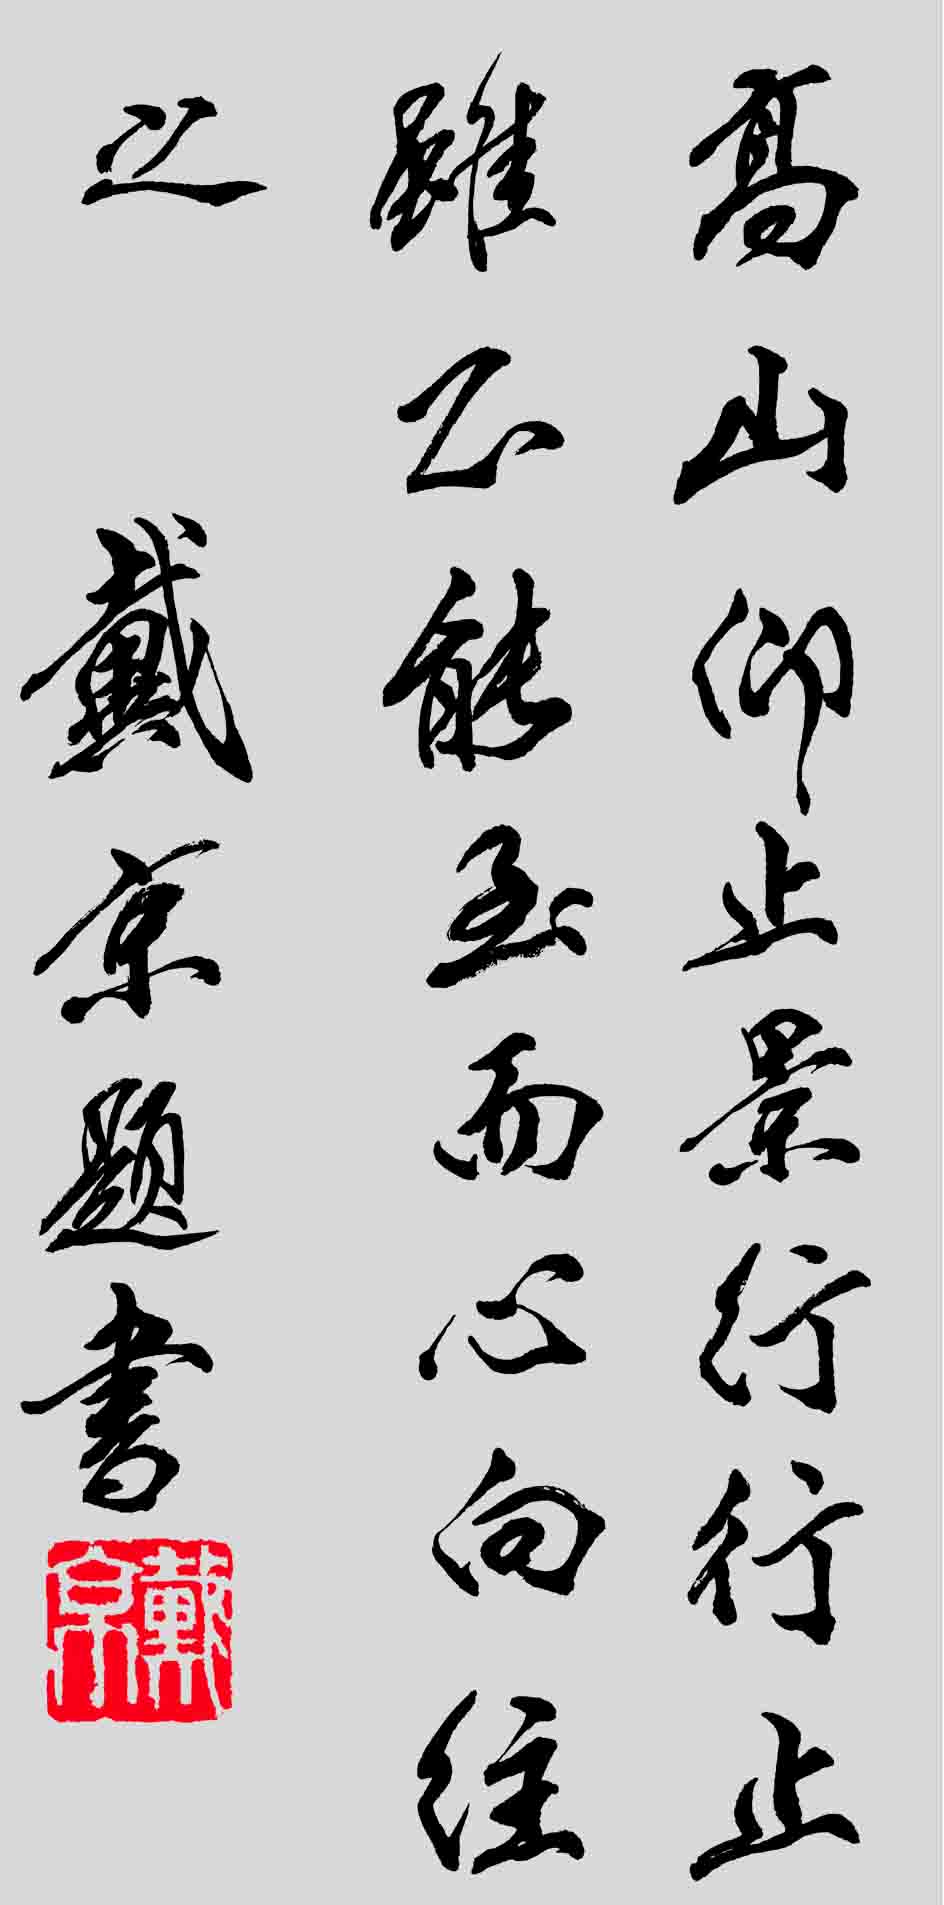 高山仰止景行行止
雖不能至而心向往
之
戴京题書
戴京